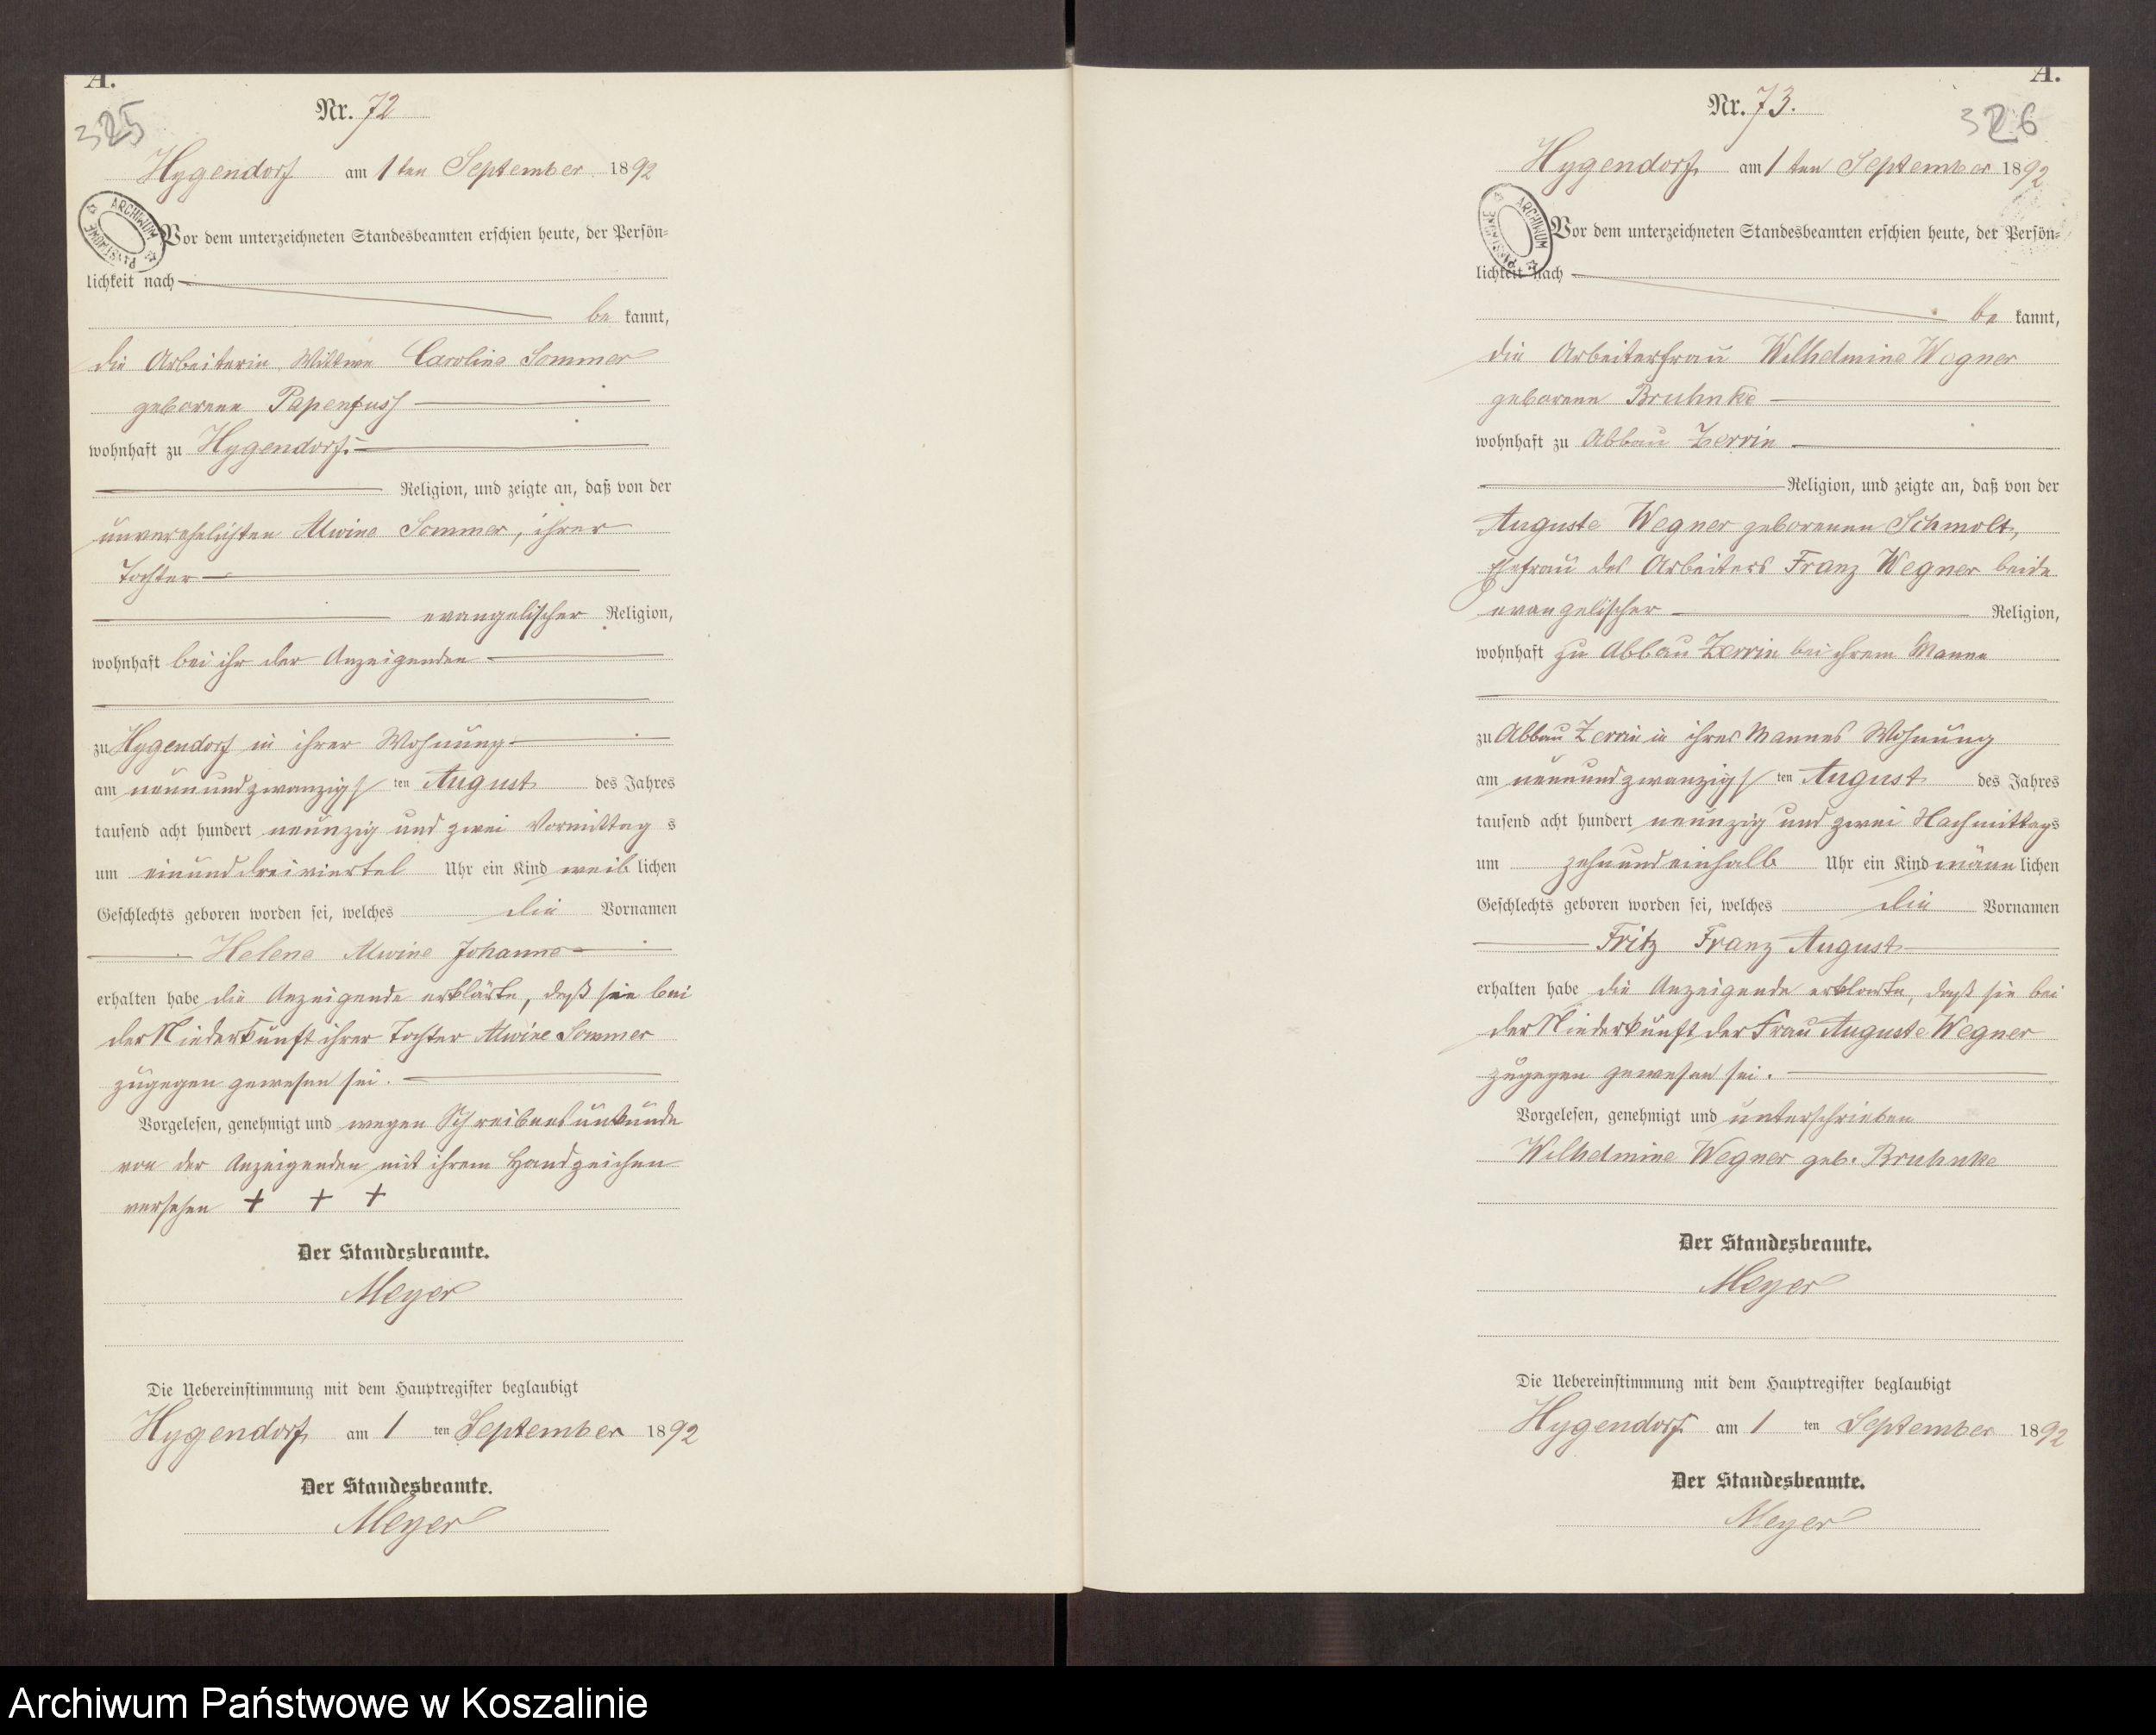 A.
325
Nr. 72
Hygendorf am 1ten September 1892
ARCHIWUM PAŃSTWOWE
Vor dem unterzeichneten Standesbeamten erschien heute, der Persön=
lichkeit nach
be kannt,
die Arbeiterin, Wittwe Caroline Sommer
geborene Papenfuss
wohnhaft zu Hygendorf.
Religion, und zeigte an, daß von der
unverehelichten Alwine Sommer, ihrer
Tochter
evangelischer Religion,
wohnhaft bei ihr der Anzeigenden
zu Hygendorf in ihrer Wohnung
am neunundzwanzigs ten August des Jahres
tausend acht hundert neunzig und zwei Vormittag s
um einunddreiviertel Uhr ein Kind weib lichen
Geschlechts geboren worden sei, welches die Vornamen
Helene Alwine Johanne
erhalten habe die Anzeigende erklärte, daß sie bei
der Niederkunft ihrer Tochter Alwine Sommer
zugegen gewesen sei.
Vorgelesen, genehmigt und wegen Schreibensunkunde
von der Anzeigenden mit ihrem Handzeichen
versehen + + +
Der Standesbeamte.
Meyer
Die Uebereinstimmung mit dem Hauptregister beglaubigt
Hygendorf, am 1 ten September 1892
Der Standesbeamte.
Meyer
A.
326
Nr. 73.
Hygendorf, am 1 ten September 1892
ARCHIWUM PAŃSTWOWE
Vor dem unterzeichneten Standesbeamten erschien heute, der Persön=
lichkeit nach
be kannt,
die Arbeiterfrau Wilhelmine Wegner
geborene Bruhnke
wohnhaft zu Abbau Zerrin
Religion, und zeigte an, daß von der
Auguste Wegner geborenen Schmolt,
Ehefrau des Arbeiters Franz Wegner beide
evangelischer Religion,
wohnhaft zu Abbau Zerrin bei ihrem Manne
zu Abbau Zerrin in ihres Mannes Wohnung
am neunundzwanzigs ten August des Jahres
tausend acht hundert neunzig und zwei Nachmittags
um zehnundeinhalb Uhr ein Kind männ lichen
Geschlechts geboren worden sei, welches die Vornamen
Fritz Franz August
erhalten habe die Anzeigende erklärte, daß sie bei
der Niederkunft der Frau Auguste Wegner
zugegen gewesen sei.
Vorgelesen, genehmigt und unterschrieben
Wilhelmine Wegner geb. Bruhnke
Der Standesbeamte.
Meyer
Die Uebereinstimmung mit dem Hauptregister beglaubigt
Hygendorf. am 1 ten September 1892
Der Standesbeamte.
Meyer
Archiwum Państwowe w Koszalinie